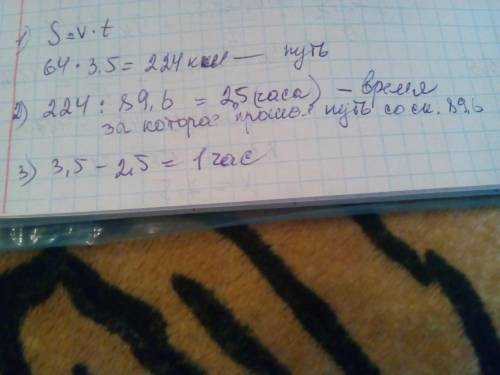 1) S=v·t
64·3,5=224 км — путь
2) 224 : 89,6 = 2,5 (часа) – время
за которое прошел путь со ск. 89,6
3) 3,5 – 2,5 = 1 час